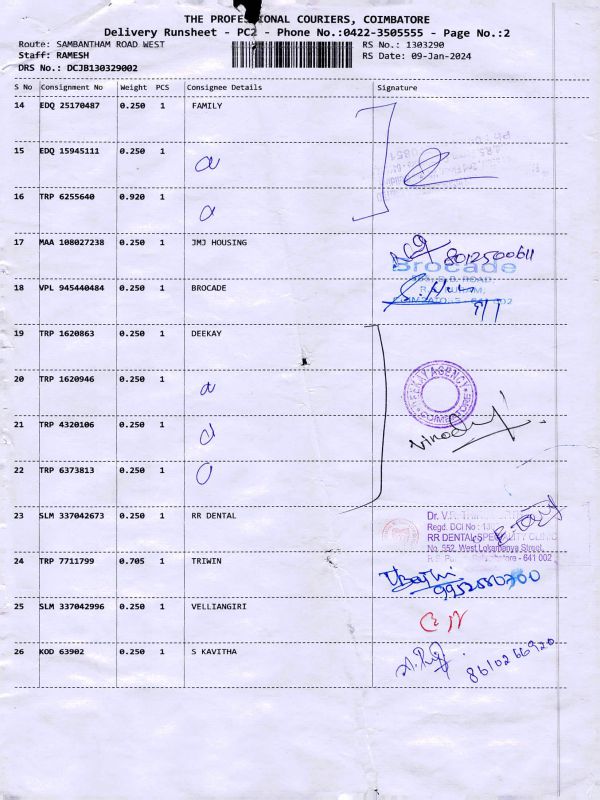 THE PROFESSIONAL COURIERS, COIMBATORE
Delivery Runsheet - PC2 - Phone No.:0422-3505555 - Page No.:2
Route: SAMBANTHAM ROAD WEST RS No.: 1303290
Staff: RAMESH RS Date: 09-Jan-2024
DRS No.: DCJB130329002
S No Consignment No Weight PCS Consignee Details Signature
14 EDQ 25170487 0.250 1 FAMILY
15 EDQ 15945111 0.250 1
16 TRP 6255640 0.920 1
17 MAA 108027238 0.250 1 JMJ HOUSING
8012500611
Brocade
18 VPL 945440484 0.250 1 BROCADE
19 TRP 1620863 0.250 1 DEEKAY
20 TRP 1620946 0.250 1
DEEKAY AGENCY
COIMBATORE
21 TRP 4320106 0.250 1
22 TRP 6373813 0.250 1
23 SLM 337042673 0.250 1 RR DENTAL
Dr. V.
Regd. DCI No :
RR DENTAL SPECIALITY CLINIC
No. 552, West Lokamanya Street,
- 641 002
24 TRP 7711799 0.705 1 TRIWIN
25 SLM 337042996 0.250 1 VELLIANGIRI
26 KOD 63902 0.250 1 S KAVITHA
8610266920